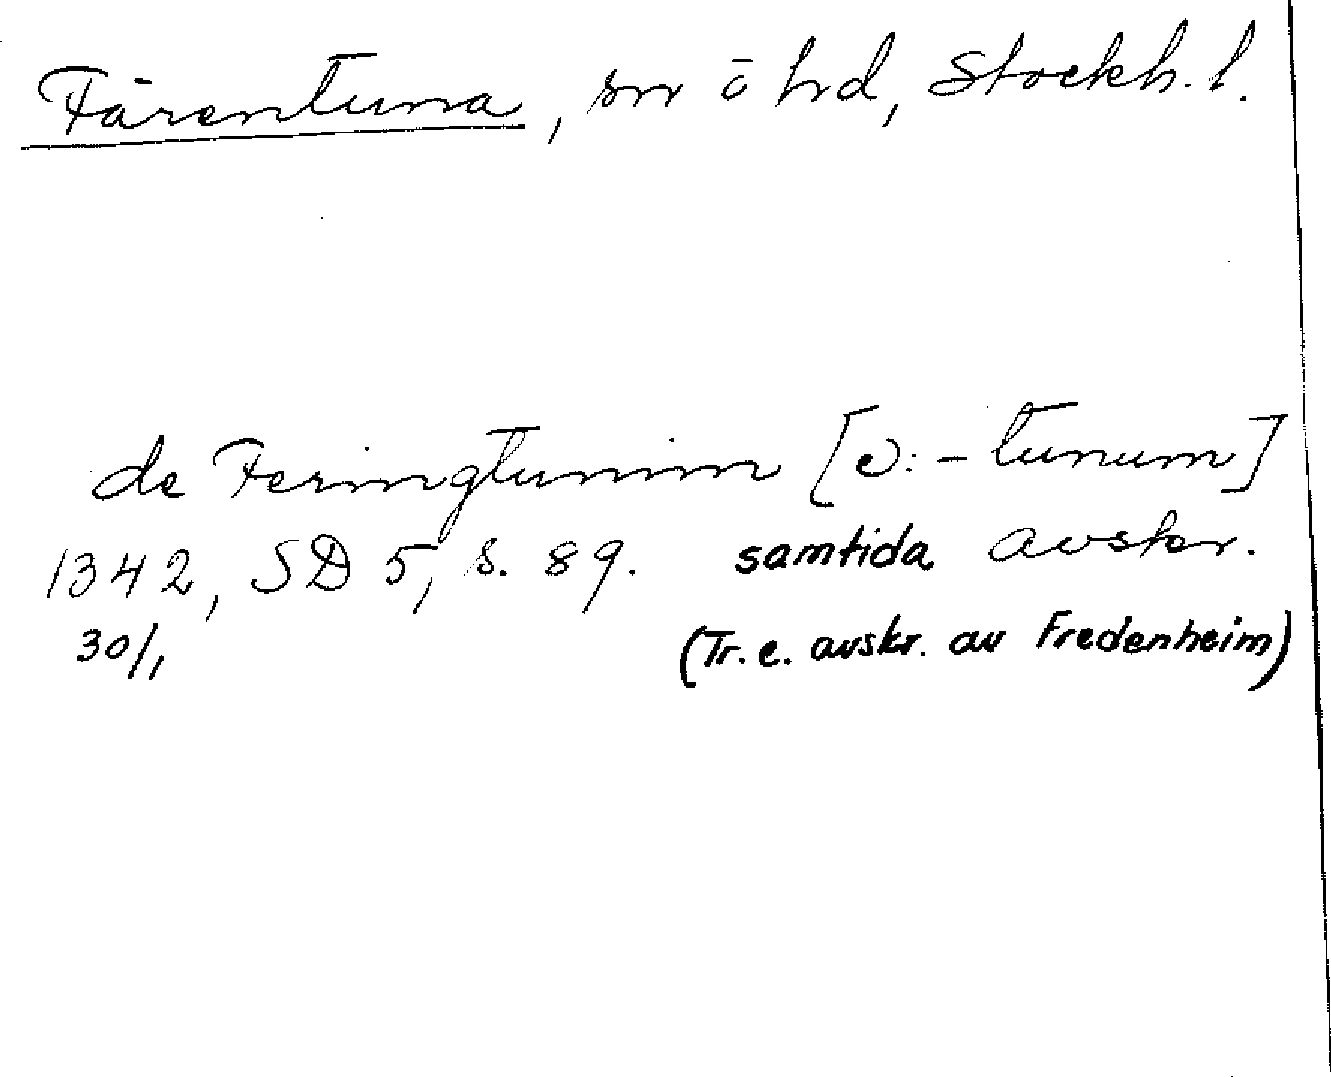 Färentuna, sn ö hd, Stockh. l.
de Feringtunim [ɔ: - tunum]
1342, SD 5, s. 89. samtida avskr.
30/1 (Tr. e. avskr. av Fredenheim)